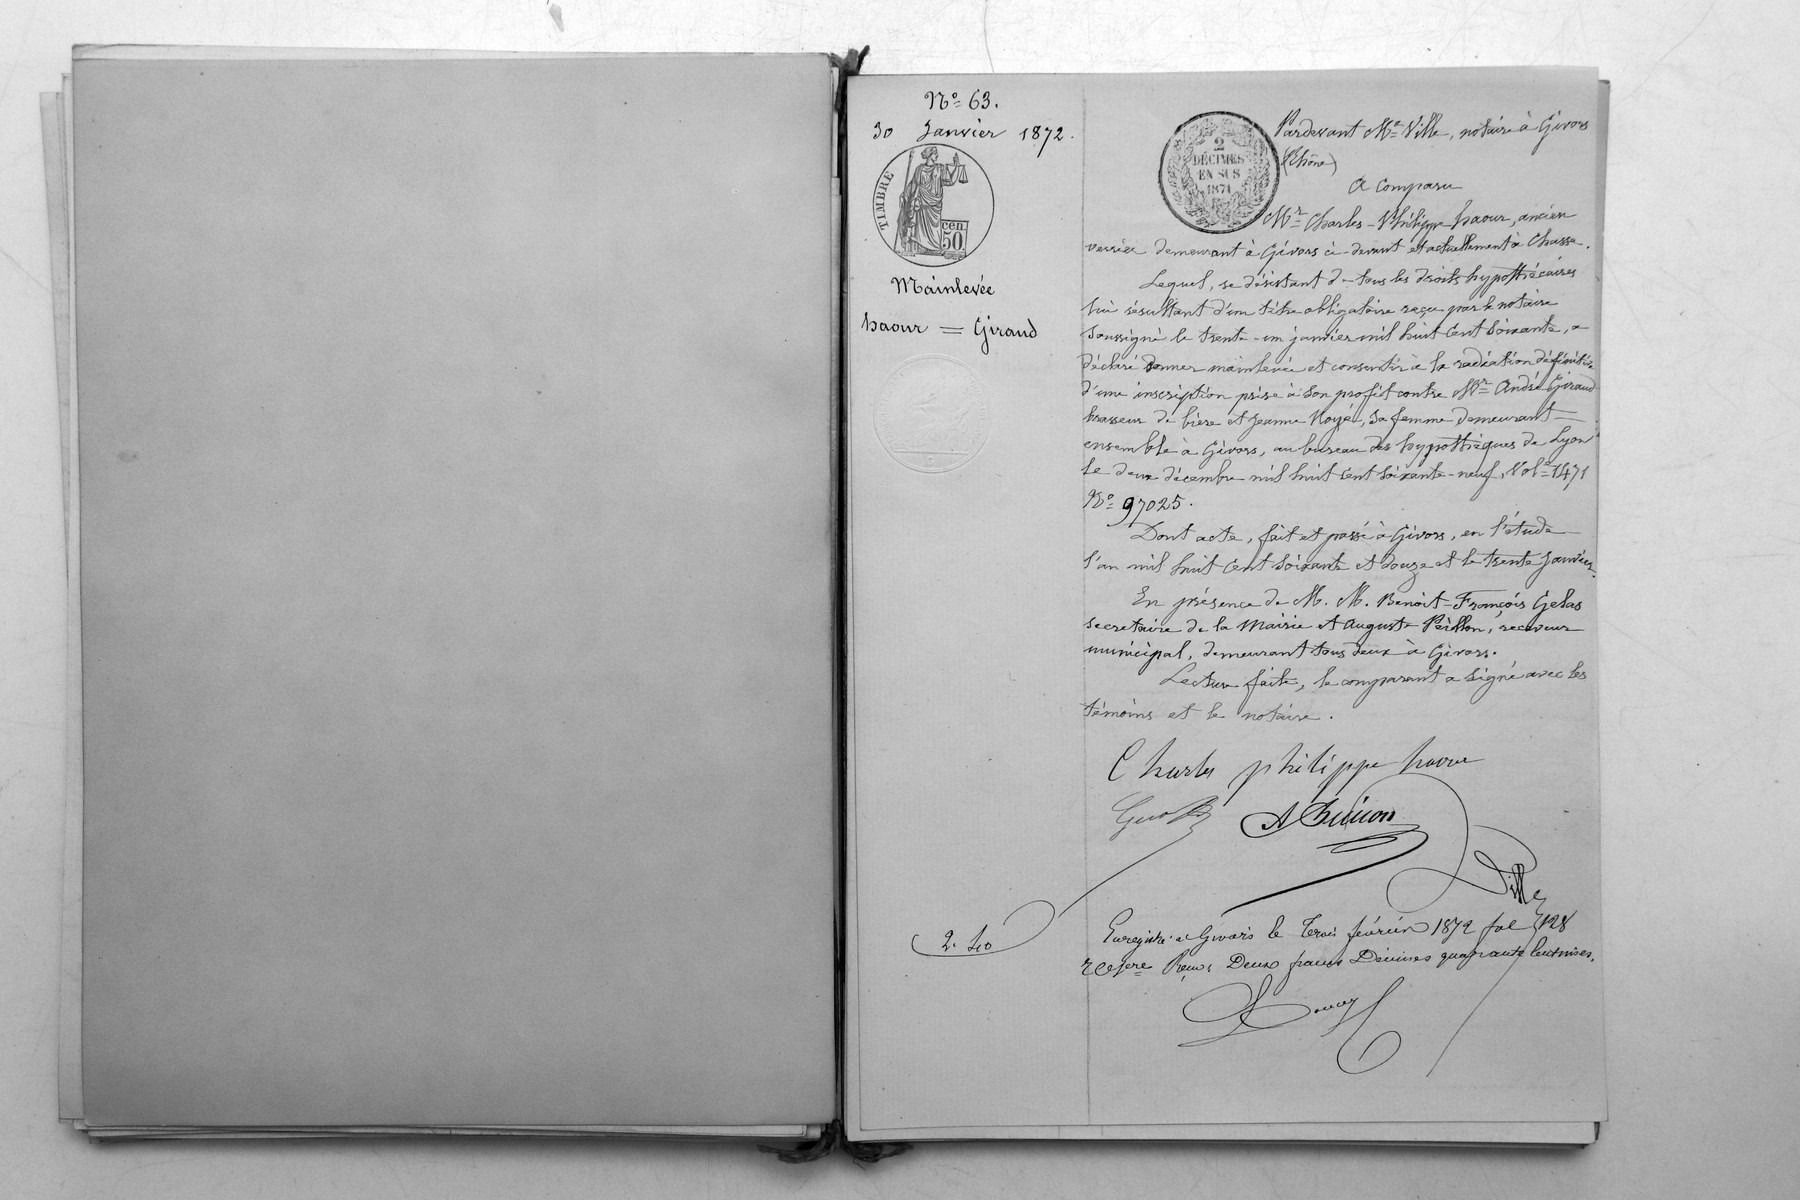 N° 63.
30 Janvier 1872.
TIMBRE
50 cen.
Mainlevée
haour = Giraud
2 DÉCIMES EN SUS 1871
Pardevant Me Ville, notaire à Givors
(Rhône)
A Comparu
Mr Charles-Philippe haour, ancien
verrier demeurant à Givors ci-devant et actuellement à Chasse.
Lequel, se désistant de tous les droits hypothécaires
lui résultant d'un titre obligatoire reçu par le notaire
soussigné le trente-un janvier mil huit cent soixante, a
déclaré donner mainlevée et consentir à la radiation définitive
d'une inscription prise à son profit contre Mr André Giraud
brasseur de bière et Jeanne Noyé, sa femme demeurant
ensemble à Givors, au bureau des hypothèques de Lyon
le deux décembre mil huit cent soixante-neuf, Vol. 1471
N° 97025.
Dont acte, fait et passé à Givors, en l'étude
l'an mil huit cent soixante et douze et le trente Janvier.
En présence de M. M. Benoit-François Gelas
secretaire de la Mairie et Auguste, receveur
municipal, demeurant tous deux à Givors.
Lecture faite, le comparant a signé avec les
témoins et le notaire.
Charles philippe haour
Ville
2.40
Enregistré à Givors le Trois février 1872 fol 128
Reçu: Deux francs Décimes quarante centimes.